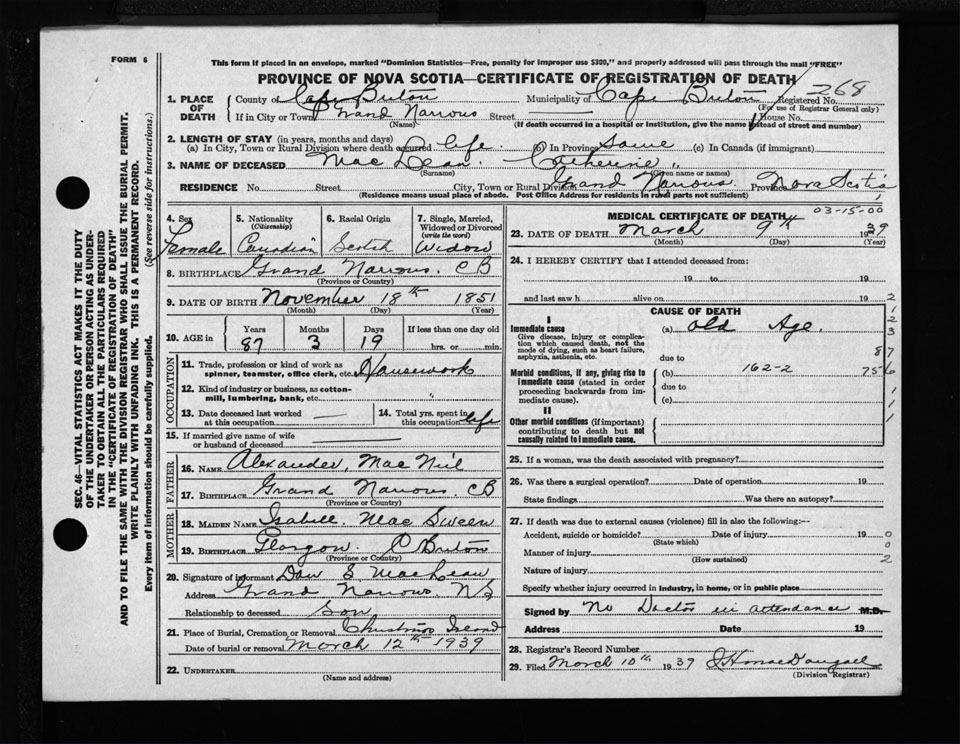 FORM 6
This form if placed in an envelope, marked "Dominion Statistics—Free, penalty for improper use $300," and properly addressed will pass through the mail "FREE"
PROVINCE OF NOVA SCOTIA—CERTIFICATE OF REGISTRATION OF DEATH
268
1. PLACE OF DEATH County of Cape Breton Municipality of Cape Breton Registered No.
(For use of Registrar General only)
If in City or Town Grand Narrows Street House No.
(Name) (If death occurred in a hospital or institution, give the name instead of street and number)
2. LENGTH OF STAY (in years, months and days)
(a) In City, Town or Rural Division where death occurred life. (b) In Province Same (c) In Canada (if immigrant)
3. NAME OF DECEASED Mac Lean. Catherine "
(Surname) (Given name or names)
RESIDENCE No. Street City, Town or Rural Division Grand Narrows. Province Nova Scotia
(Residence means usual place of abode. Post Office Address for residents in rural parts not sufficient)
4. Sex Female
5. Nationality (Citizenship) Canadian
6. Racial Origin Scotch
7. Single, Married, Widowed or Divorced (write the word) Widow
8. BIRTHPLACE Grand Narrows. CB
(Province or Country)
9. DATE OF BIRTH November 18th 1851
(Month) (Day) (Year)
10. AGE in Years 87 Months 3 Days 19 If less than one day old hrs. or min.
OCCUPATION
11. Trade, profession or kind of work as spinner, teamster, office clerk, etc. Housework
12. Kind of industry or business, as cotton-mill, lumbering, bank, etc. "
13. Date deceased last worked at this occupation —
14. Total yrs. spent in this occupation life
15. If married give name of wife or husband of deceased
FATHER
16. NAME Alexander, Mac Neil
17. BIRTHPLACE Grand Narrows. CB
(Province or Country)
MOTHER
18. MAIDEN NAME Isabell. Mac Sween
19. BIRTHPLACE Glasgow. Breton
(Province or Country)
20. Signature of informant Dan S. MacLean
Address Grand Narrows. NS
Relationship to deceased Son
21. Place of Burial, Cremation or Removal Christmas Island
Date of burial or removal March 12th 1939
22. UNDERTAKER
(Name and address)
MEDICAL CERTIFICATE OF DEATH
03-15-00
23. DATE OF DEATH March 9th 1939
(Month) (Day) (Year)
24. I HEREBY CERTIFY that I attended deceased from:
19 to 19
and last saw h alive on 19
CAUSE OF DEATH
I
Immediate cause (a) Old Age.
Give disease, injury or complication which caused death, not the mode of dying, such as heart failure, asphyxia, asthenia, etc.
due to
Morbid conditions, if any, giving rise to immediate cause (stated in order proceeding backwards from immediate cause).
(b) 162-2
due to
(c)
II
Other morbid conditions (if important) contributing to death but not causally related to immediate cause.
25. If a woman, was the death associated with pregnancy?
26. Was there a surgical operation? Date of operation 19
State findings Was there an autopsy?
27. If death was due to external causes (violence) fill in also the following:—
Accident, suicide or homicide? Date of injury 19
(State which)
Manner of injury
(How sustained)
Nature of injury
Specify whether injury occurred in industry, in home, or in public place
Signed by No Doctor in attendance M.D.
Address Date 19
28. Registrar's Record Number
29. Filed March 10th 1939 J H MacDougall
(Division Registrar)
SEC. 46—VITAL STATISTICS ACT MAKES IT THE DUTY
OF THE UNDERTAKER OR PERSON ACTING AS UNDER-
TAKER TO OBTAIN ALL THE PARTICULARS REQUIRED
IN THE "CERTIFICATE OF REGISTRATION OF DEATH"
AND TO FILE THE SAME WITH THE DIVISION REGISTRAR WHO SHALL ISSUE THE BURIAL PERMIT.
WRITE PLAINLY WITH UNFADING INK. THIS IS A PERMANENT RECORD.
Every item of information should be carefully supplied. (See reverse side for instructions.)